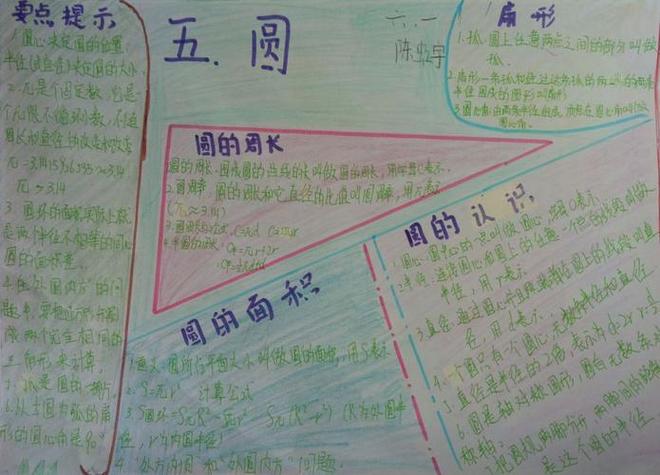 要点提示
1.圆心决定圆的位置,
半径(或直径)决定圆的大小
2.π是个固定数,也是
个无限不循环小数,不随
圆长和直径的改变而改变
π≈3.14
3.圆环的面积实际上就
是两个半径不相等的同心
圆的面积差
4.在"外圆内方"的问
题中,要把正方形看
两个完全相同的
三角形来计算。
5.弧是圆的一部分。
五.圆
六.一
扇形
1.弧:圆上任意两点之间的部分叫做
弧.
2.扇形:一条弧和经过这条弧的两端的两条
半径围成的图形叫扇形
3.圆心角:由两条半径组成,顶点在圆心的角叫做
圆心角.
圆的周长
1.圆的周长:围成圆的曲线的长叫做圆的周长,用字母C表示.
2.圆周率:圆的周长和它直径的比值叫圆周率,用π表示
(π≈3.14)
3.圆周长的公式:C=πd C=2πr
4.半圆的周长:C半=πr+2r
圆的认识
1.圆心:圆中心的一点叫做圆心,用字母O表示.
2.半径:连接圆心和圆上任意一点的线段叫做
半径,用r表示.
3.直径:通过圆心并且两端都在圆上的线段叫直
径,用d表示.
4.一个圆只有一个圆心,无数条半径和直径
5.直径是半径的2倍,表示为d=2r
6.圆是轴对称图形,圆有无数条对
称轴.
7.把圆规两脚分开,两脚间的距离
是这个圆的半径.
圆的面积
1.意义:圆所占平面大小叫做圆的面积,用S表示
2.S=πr² 计算公式
3.S圆环=πR²-πr² S=π(R²-r²) (R为外圆半
径,r为内圆半径)
4."外方内圆"和"外圆内方"问题.